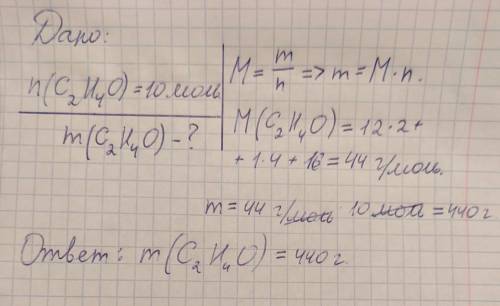 Дано:
n(C₂H₄O)=10 моль
m(C₂H₄O)-?
M = m/n => m = M·n.
M(C₂H₄O) = 12·2+
+1·4+16=44 г/моль.
m=44 г/моль 10 моль = 440 г
Ответ: m(C₂H₄O) = 440 г.